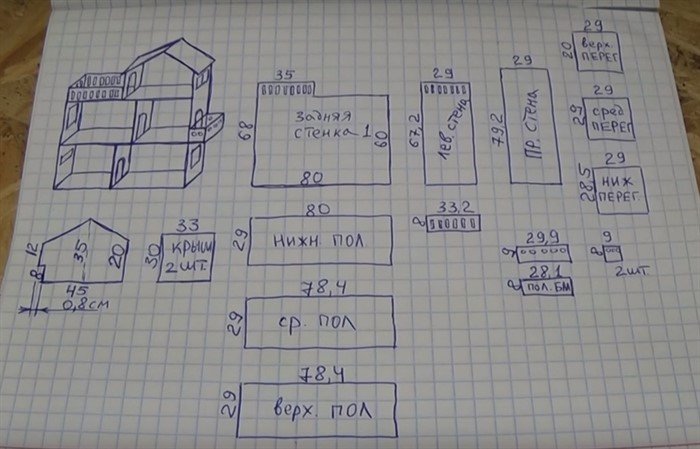 35
68
Задняя
стенка 1
60
80
29
67,2
лев стена
29
79,2
ПР. СТЕНА
29
20
верх.
ПЕРЕГ
29
29
сред
ПЕРЕГ
29
28,5
НИЖ
ПЕРЕГ.
12
35
20
8
45
0,8см
33
30
КРЫШ
2 шт.
80
29
НИЖН. ПОЛ
33,2
8
29,9
9
28,1
8
ПОЛ. БМ
9
8
2шт.
78,4
29
ср. ПОЛ
78,4
29
верх. ПОЛ